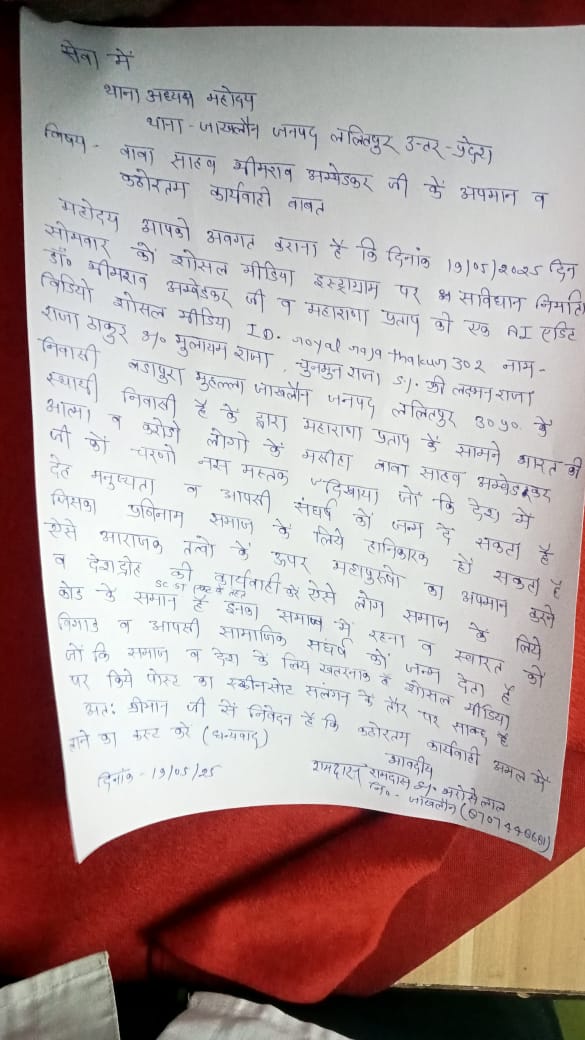 सेवा में
थाना अध्यक्ष महोदय
थाना - जाखलौन जनपद ललितपुर उत्तर-प्रदेश
विषय - बाबा साहब भीमराव अम्बेडकर जी के अपमान व
कठोरतम कार्यवाही बावत
महोदय आपको अवगत कराना है कि दिनांक 19/05/2025 दिन
सोमवार को शोसल मीडिया इस्ट्राग्राम पर सविधान निर्माता
डॉ० भीमराव अम्बेडकर जी व महाराणा प्रताप की एक AI एडिट
विडियो शोसल मीडिया I.D. royal raja thakur 302 नाम-
राजा ठाकुर s/o मुलायम राजा, चुनमुन राजा s/o श्री लक्ष्मन राजा
निवासी बडापुरा मुहल्ला जाखलौन जनपद ललितपुर उ०प्र० के
स्थायी निवासी है के द्वारा महाराणा प्रताप के सामने भारत की
आत्मा व करोडो लोगो के मसीहा बाबा साहब अम्बेडकर
जी को चरणो नस मस्तक दिखाया जो कि देश में
देह मनुष्यता व आपसी संघर्ष को जन्म दे सकता है
जिसका प्रणिनाम समाज के लिये हानिकारक हो सकता है
ऐसे आराजक तत्वो के ऊपर महापुरुषो का अपमान करने
व देशद्रोह की कार्यवाही करे ऐसे लोग समाज के लिये
SC ST
कोड के समान है इनका समाज में रहना व भारत को
विगाड व आपसी सामाजिक संघर्ष को जन्म देता है
जो कि समाज व देश के लिये खतरनाक है शोसल मीडिया
पर किये पोस्ट का स्क्रीनसोट सलंगन के तौर पर साक्ष्य है
अतः श्रीमान जी से निवेदन है कि कठोरतम कार्यवाही अमल में
लाने का कस्ट करे (धन्यवाद)
दिनांक - 19/05/25
आवदीय
रामदास रामदास s/o भरोसे लाल
नि०- जाखलौन (